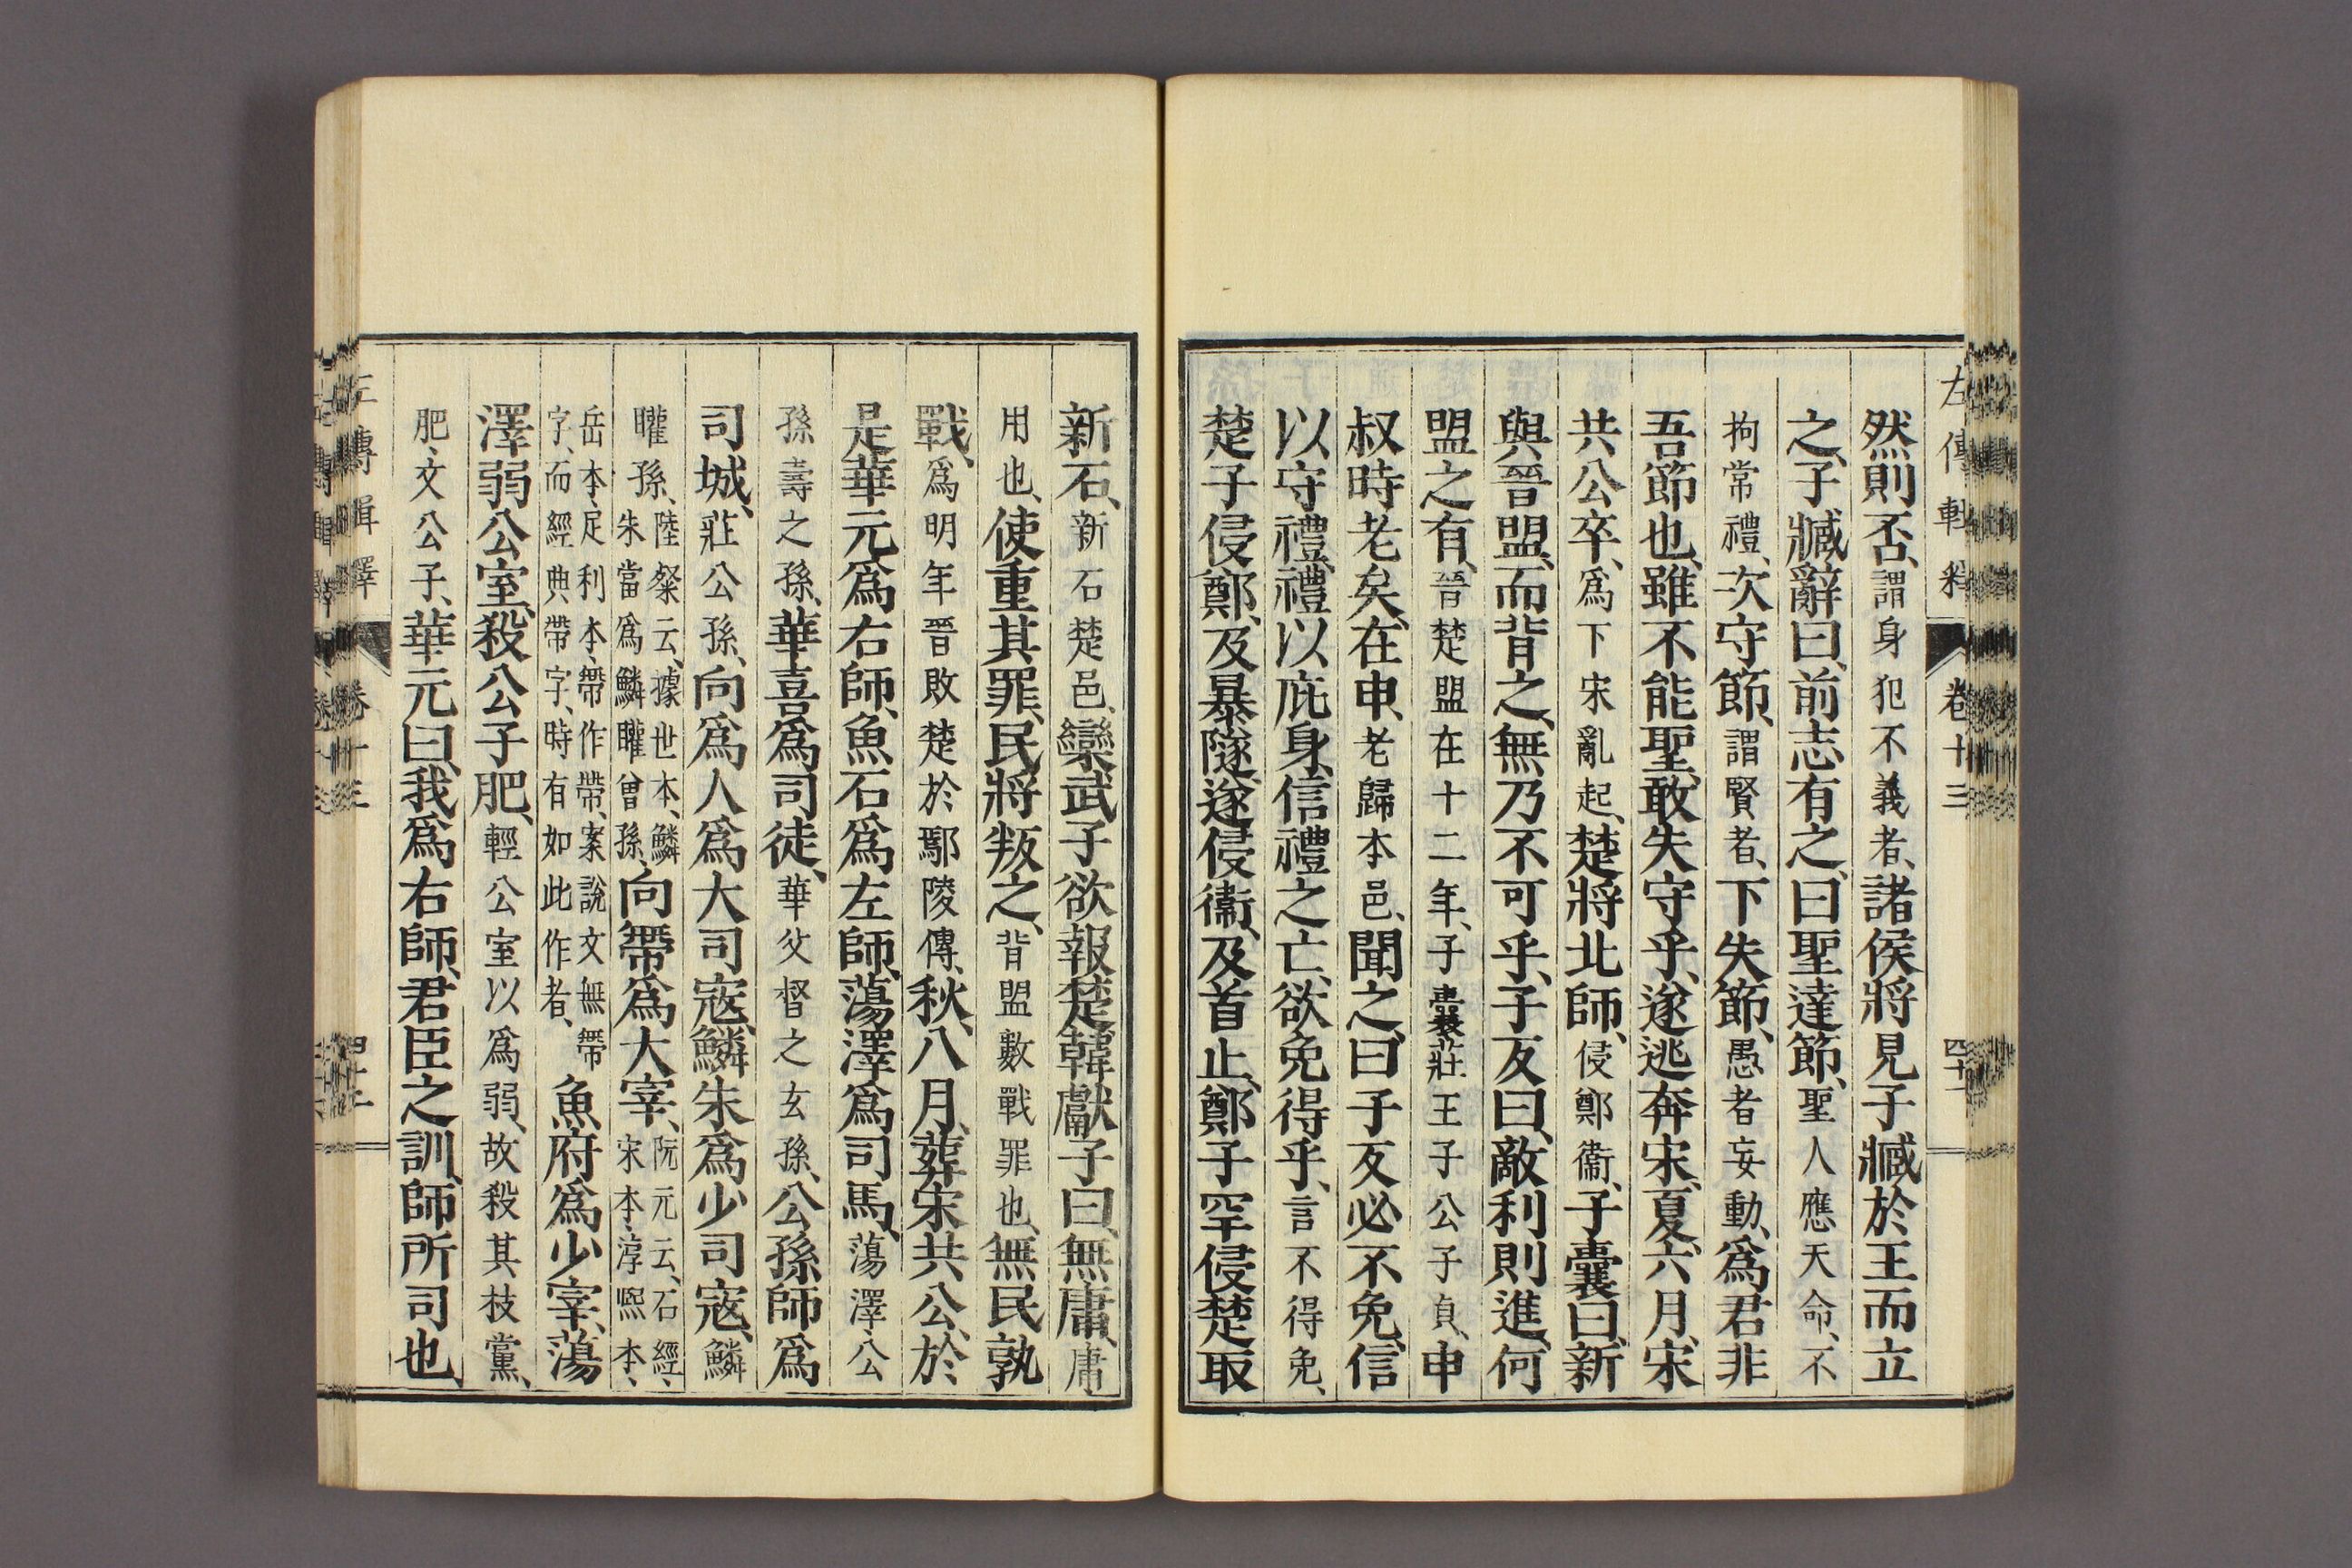 左傳輯釋 卷十三 四十一
然則否、謂身犯不義者、諸侯將見子臧於王而立
之、子臧辭曰、前志有之、曰聖達節、聖人應天命、不
拘常禮、次守節、謂賢者、下失節、愚者妄動、爲君非
吾節也、雖不能聖、敢失守乎、遂逃奔宋、夏、六月、宋
共公卒、爲下宋亂起、楚將北師、侵鄭衞、子囊曰、新
與晉盟、而背之、無乃不可乎、子反曰、敵利則進、何
盟之有、晉楚盟在十二年、子囊莊王子公子貞、申
叔時老矣、在申、老歸本邑、聞之、曰子反必不免、信
以守禮、禮以庇身、信禮之亡、欲免得乎、言不得免、
楚子侵鄭、及暴隧、遂侵衞、及首止、鄭子罕侵楚取
新石、新石楚邑、欒武子欲報楚、韓獻子曰、無庸、庸
用也、使重其罪、民將叛之、背盟數戰罪也、無民孰
戰、爲明年晉敗楚於鄢陵傳、秋、八月、葬宋共公、於
是華元爲右師、魚石爲左師、蕩澤爲司馬、蕩澤、公
孫壽之孫、華喜爲司徒、華父督之玄孫、公孫師爲
司城、莊公孫、向爲人爲大司寇、鱗朱爲少司寇、鱗
矔孫、陸粲云、據世本、鱗朱當爲鱗矔曾孫、向帶爲大宰、阮元云、石經、宋本、淳熙本、
岳本、足利本、帶作帶、案說文無帶字、而經典帶字、時有如此作者、魚府爲少宰、蕩
澤弱公室、殺公子肥、輕公室以爲弱、故殺其枝黨、
肥、文公子、華元曰、我爲右師、君臣之訓、師所司也、
左傳輯釋 卷十三